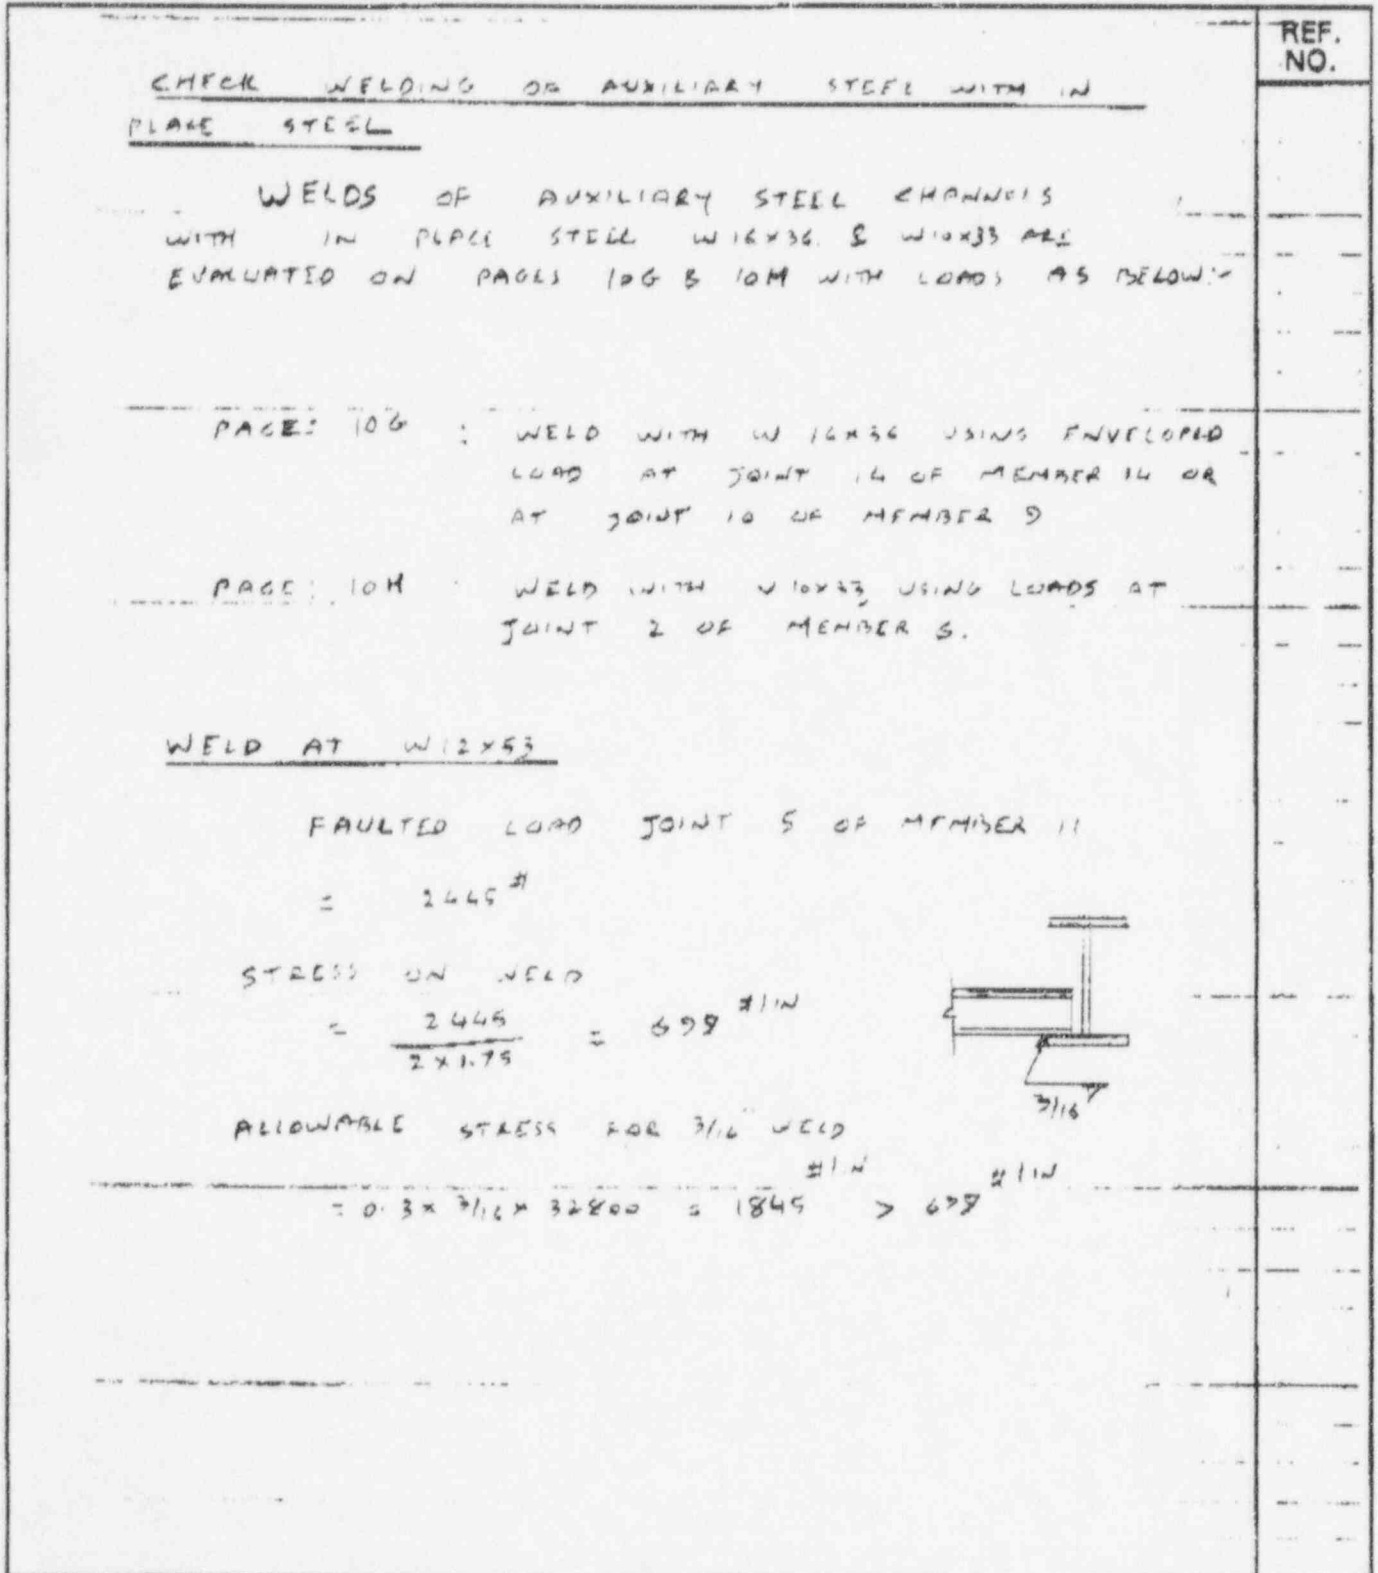 REF.
NO.
CHECK WELDING OF AUXILIARY STEEL WITH IN
PLACE STEEL
WELDS OF AUXILIARY STEEL CHANNELS
WITH IN PLACE STEEL W16x36 & W10x33 ARE
EVALUATED ON PAGES 10G & 10H WITH LOADS AS BELOW:-
PAGE: 10G : WELD WITH W 16x36 USING ENVELOPED
LOAD AT JOINT 14 OF MEMBER 14 OR
AT JOINT 10 OF MEMBER 9
PAGE: 10H WELD WITH W10x33 USING LOADS AT
JOINT 2 OF MEMBER
WELD AT W12x53
FAULTED LOAD JOINT 5 OF MEMBER 11
= 2445 #
STRESS ON WELD
= 2445 / 2 x 1.75 = 698 #/IN
3/16
ALLOWABLE STRESS FOR 3/16" WELD
= 0.3 x 3/16 x 32800 = 1845 #/IN > 698 #/IN